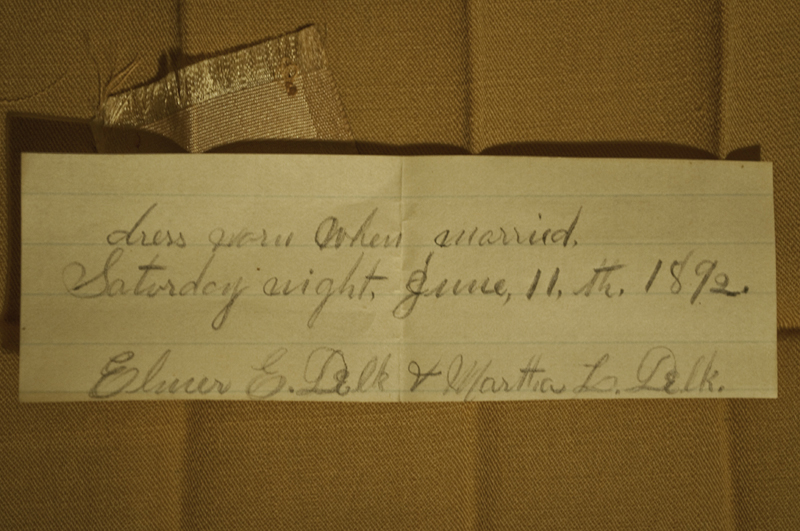 dress worn when married.
Saturday night, June, 11. th. 1892.
Elmer E. Delk & Martha L. Delk.